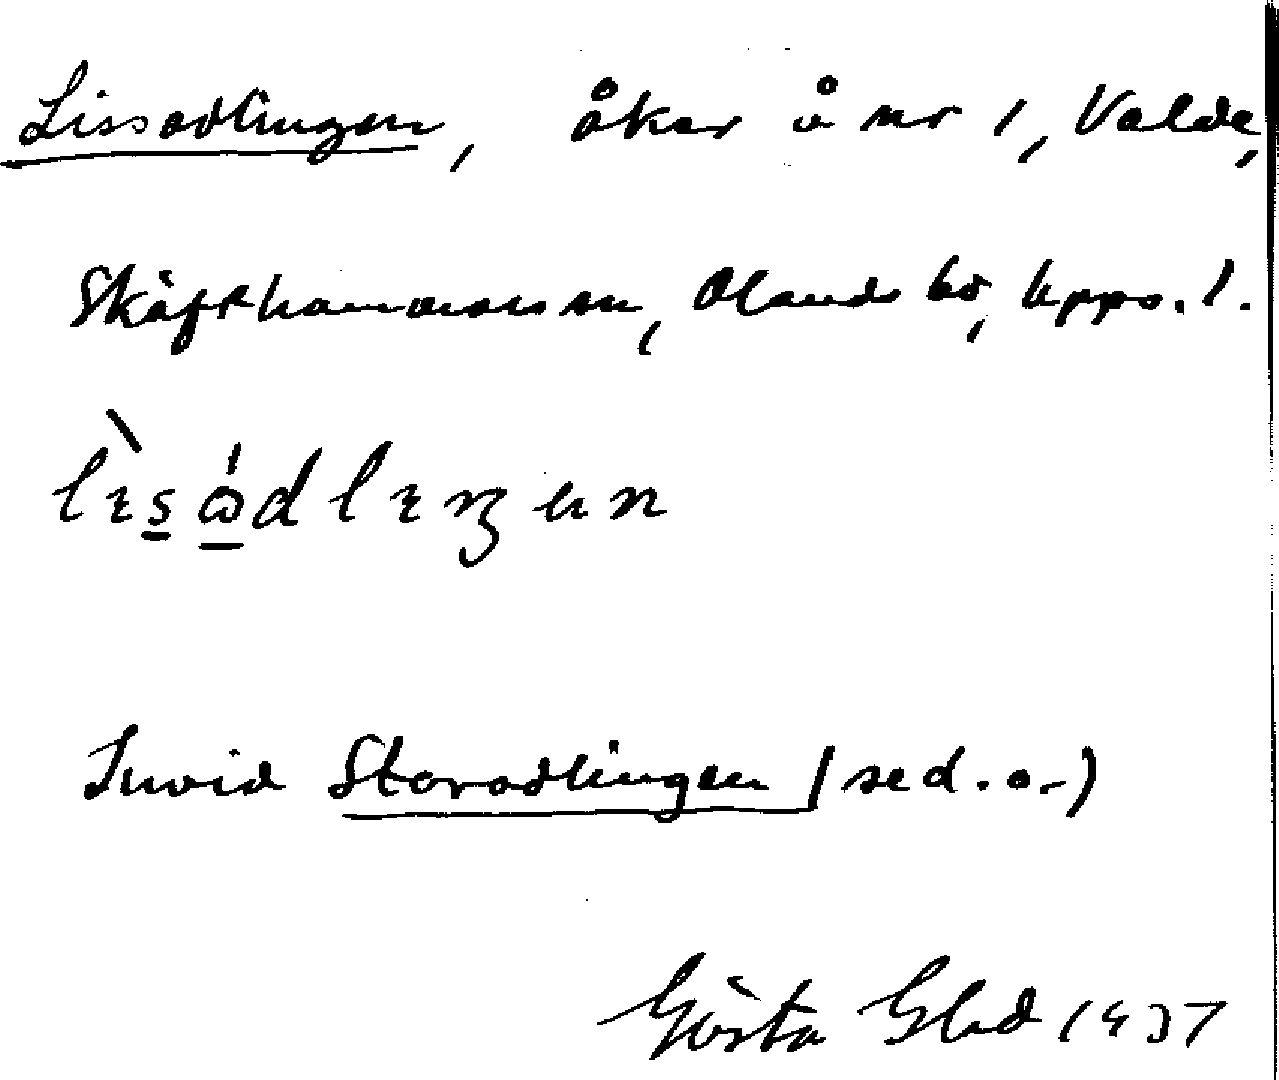 Lissodlingen, åker å nr 1, Valda,
Skäfthammars sn, Olands hd, Upps. l.
Invid Storodlingen (sed. o.)
Gösta Glad 1937